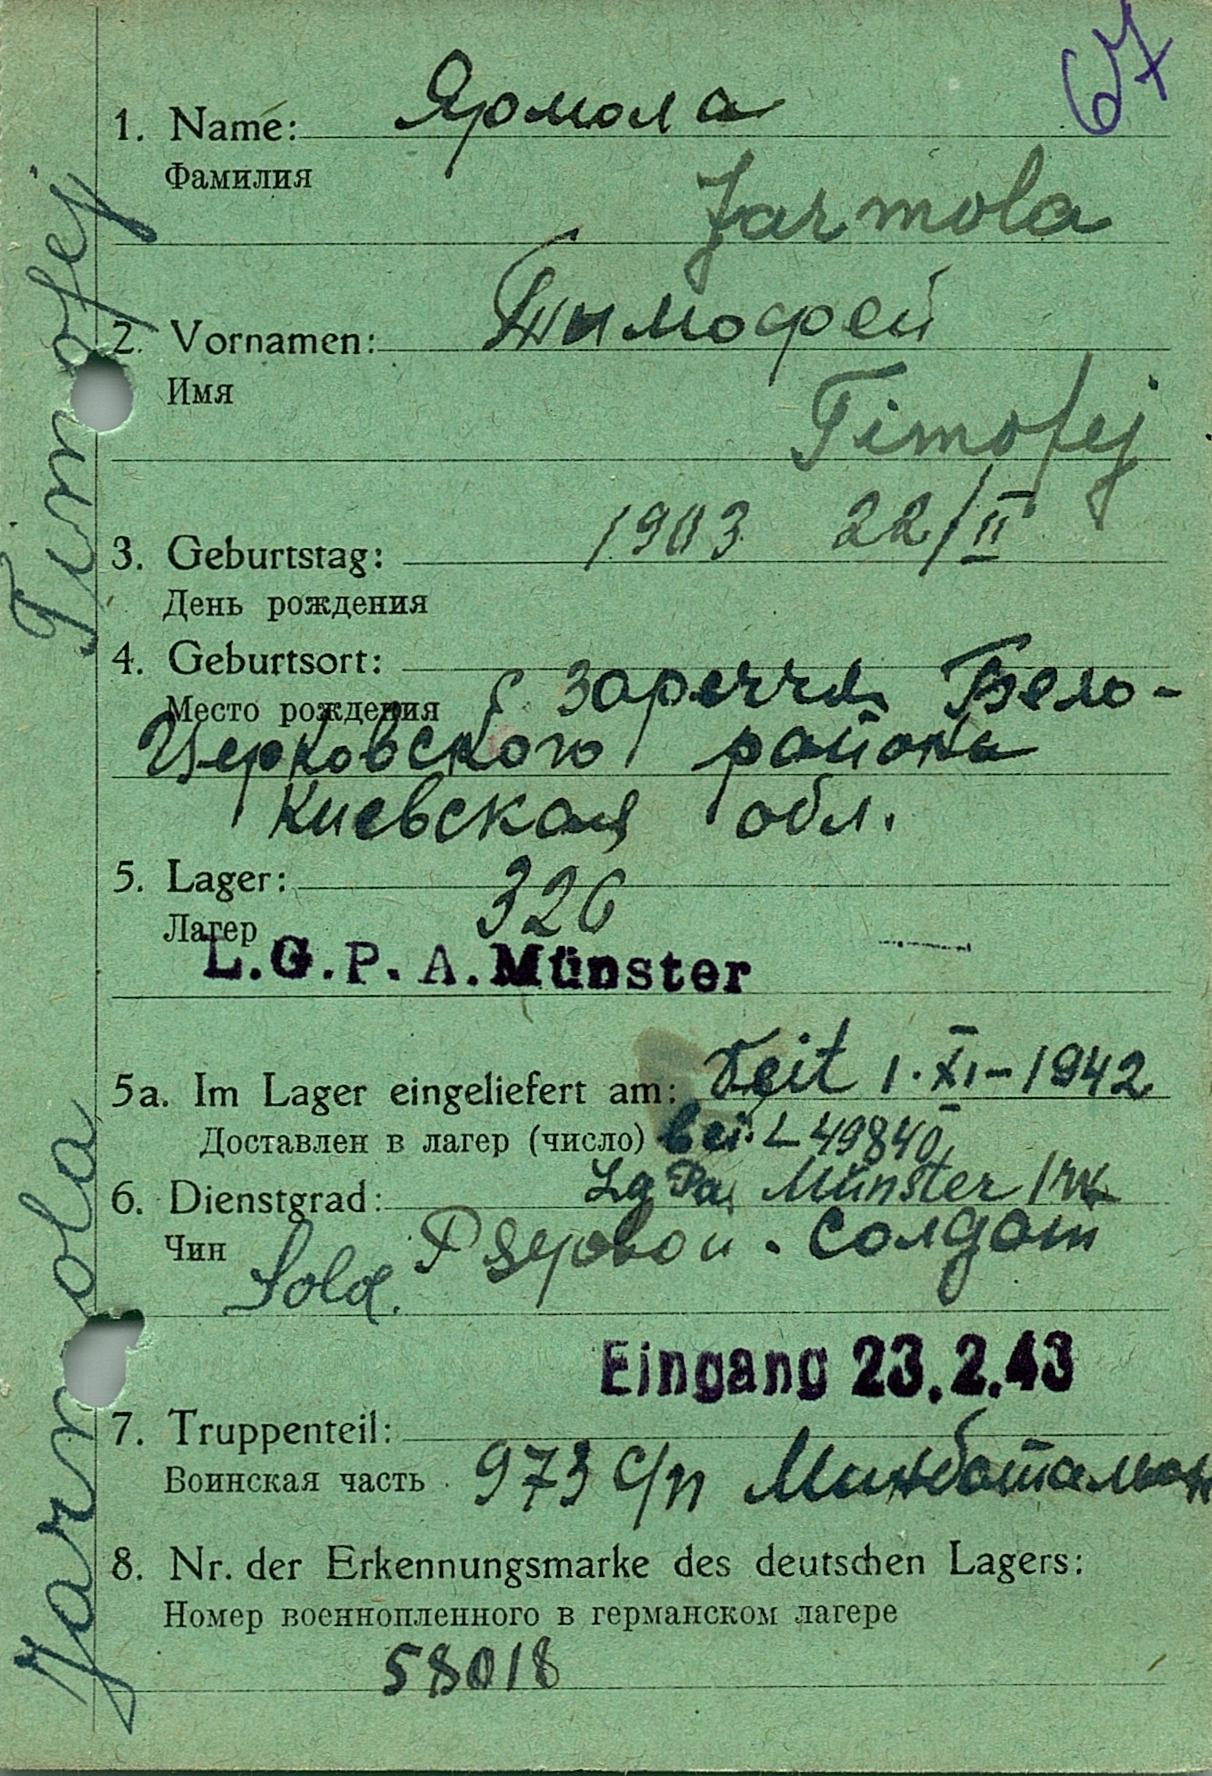 67
1. Name: Ярмола
Фамилия
Jarmola
2. Vornamen: Тымофей
Имя
Timofej
3. Geburtstag: 1903 22/II
День рождения
4. Geburtsort: с Зареччя Бело-
Место рождения
Церковского района
Киевская обл.
5. Lager: 326
Лагер
L.G.P.A. Münster
5a. Im Lager eingeliefert am: Seit 1·XI-1942
Доставлен в лагер (число) bei L 49840
6. Dienstgrad: Lg Pa, Münster
Чин Рядовой. солдат
Sold.
Eingang 23.2.43
7. Truppenteil:
Воинская часть 973 с/п
8. Nr. der Erkennungsmarke des deutschen Lagers:
Номер военнопленного в германском лагере
58018
Jarmola Timofej